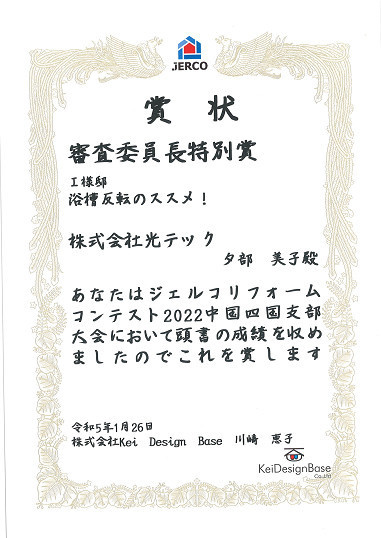 JERCO
賞状
審査委員長特別賞
I様邸
浴槽反転のススメ！
株式会社光テック
夕部 美子殿
あなたはジェルコリフォーム
コンテスト2022中国四国支部
大会において頭書の成績を収め
ましたのでこれを賞します
令和5年1月26日
株式会社Kei Design Base 川崎 恵子
KeiDesignBase
Co.,Ltd